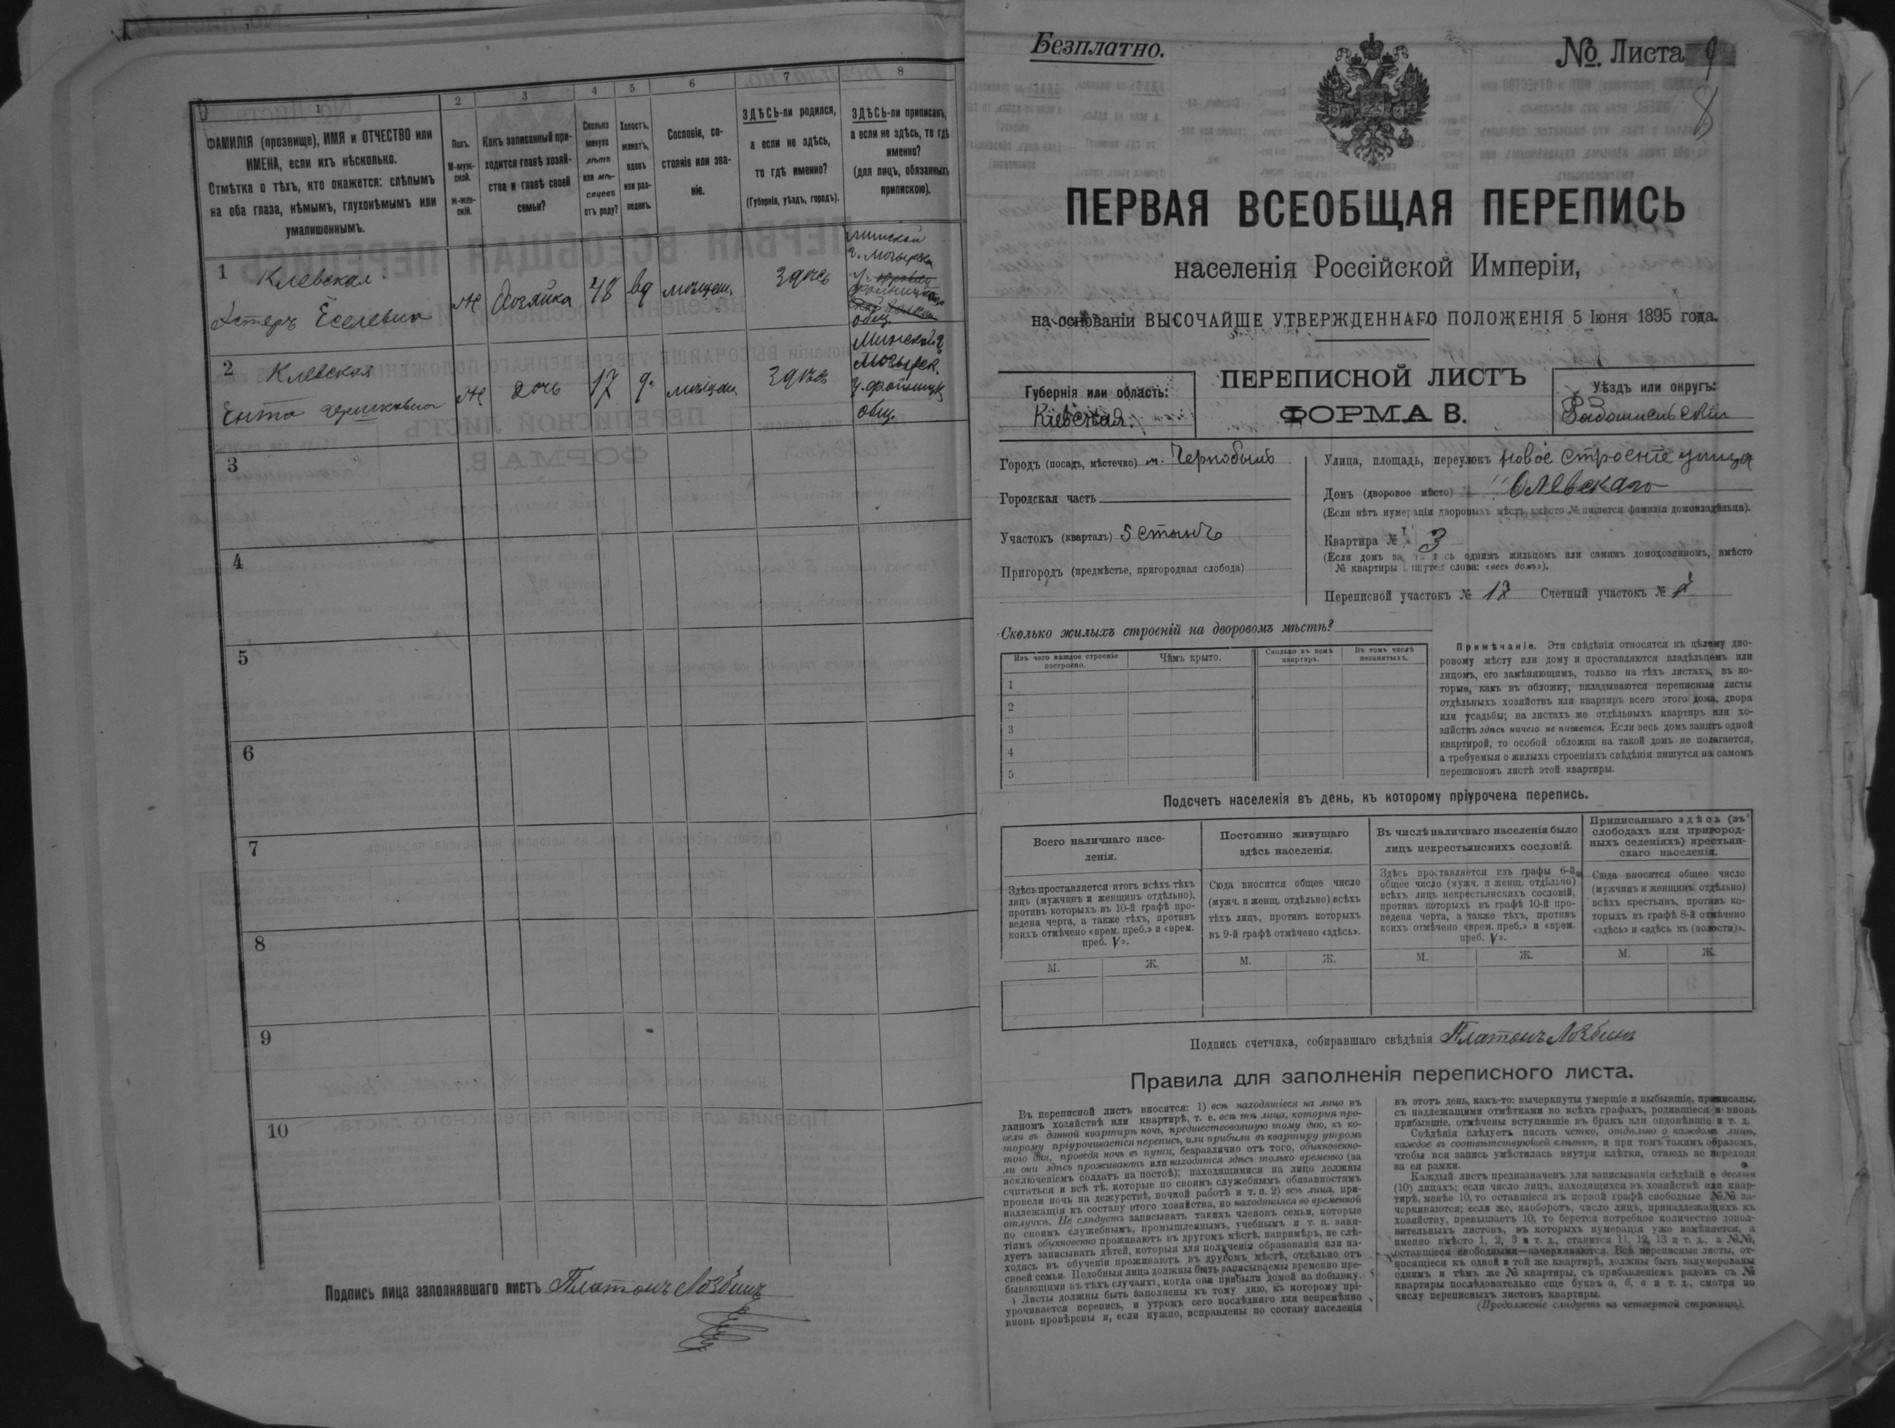 1
2
3
4
5
6
7
8
ФАМИЛІЯ (прозвище), ИМЯ и ОТЧЕСТВО или
ИМЕНА, если ихъ нѣсколько.
Отмѣтка о тѣхъ, кто окажется: слѣпымъ
на оба глаза, нѣмымъ, глухонѣмымъ или
умалишеннымъ.
Полъ.
М-муж-
ской.
ж-жен-
скій.
Какъ записанный при-
ходится главѣ хозяй-
ства и главѣ своей
семьи?
Сколько
минуло
лѣтъ
или мѣ-
сяцевъ
отъ роду?
Холостъ,
женатъ,
вдовъ
или раз-
веденъ.
Сословіе, со-
стояніе или зва-
ніе.
ЗДѢСЬ-ли родился,
а если не здѣсь,
то гдѣ именно?
(Губернія, уѣздъ, городъ).
ЗДѢСЬ-ли приписанъ,
а если не здѣсь, то гдѣ
именно?
(для лицъ, обязанныхъ
припискою).
1 Клевская
Эстеръ Еселевна
Ж Хозяйка 48 вд мещан. здесь
Минской
г. Мозырск
у.
общ.
2 Клевская
Ента
Ж дочь 17 д. мещан. здесь
Минской г.
Мозырск.
у.
общ.
3
4
5
6
7
8
9
10
Подпись лица заполнявшаго листъ Платонъ Лозбинъ
Безплатно.
№. Листа 9
8
ПЕРВАЯ ВСЕОБЩАЯ ПЕРЕПИСЬ
населенія Россійской Имперіи,
на основаніи ВЫСОЧАЙШЕ УТВЕРЖДЕННАГО ПОЛОЖЕНІЯ 5 Іюня 1895 года.
Губернія или область:
Кіевская.
ПЕРЕПИСНОЙ ЛИСТЪ
ФОРМА В.
Уѣздъ или округъ:
Радомысьскій
Городъ (посадъ, мѣстечко) м. Чернобыль
Городская часть
Участокъ (кварталъ) 5 станъ
Пригородъ (предмѣстье, пригородная слобода)
Улица, площадь, переулокъ новое строеніе улица
Домъ (дворовое мѣсто) Олевскаго
(Если нѣтъ нумераціи дворовыхъ мѣстъ вмѣсто № пишется фамилія домовладѣльца).
Квартира № 3
(Если домъ занятъ весь однимъ жильцомъ или самимъ домохозяиномъ, вмѣсто
№ квартиры пишутся слова: «весь домъ»).
Переписной участокъ № 12 Счетный участокъ № 2
Сколько жилыхъ строеній на дворовомъ мѣстѣ?
Изъ чего каждое строеніе
построено.
Чѣмъ крыто.
Сколько въ немъ
квартиръ.
Въ томъ числѣ
незанятыхъ.
1
2
3
4
5
Примѣчаніе. Эти свѣдѣнія относятся къ цѣлому дво-
ровому мѣсту или дому и проставляются владѣльцемъ или
лицомъ, его замѣняющимъ, только на тѣхъ листахъ, въ ко-
торые, какъ въ обложку, вкладываются переписные листы
отдѣльныхъ хозяйствъ или квартиръ всего этого дома, двора
или усадьбы; на листахъ же отдѣльныхъ квартиръ или хо-
зяйствъ здѣсь ничего не пишется. Если весь домъ занятъ одной
квартирой, то особой обложки на такой домъ не полагается,
а требуемыя о жилыхъ строеніяхъ свѣдѣнія пишутся на самомъ
переписномъ листѣ этой квартиры.
Подсчетъ населенія въ день, къ которому пріурочена перепись.
Всего наличнаго насе-
ленія.
Постоянно живущаго
здѣсь населенія.
Въ числѣ наличнаго населенія было
лицъ некрестьянскихъ сословій.
Приписаннаго здѣсь (въ
слободахъ или пригород-
ныхъ селеніяхъ) крестьян-
скаго населенія.
Здѣсь проставляется итогъ всѣхъ тѣхъ
лицъ (мужчинъ и женщинъ отдѣльно),
противъ которыхъ въ 10-й графѣ про-
ведена черта, а также тѣхъ, противъ
коихъ отмѣчено «врем. преб.» и «врем.
преб. V».
Сюда вносится общее число
(мужч. и женщ. отдѣльно) всѣхъ
тѣхъ лицъ, противъ которыхъ
въ 9-й графѣ отмѣчено «здѣсь».
Здѣсь проставляется изъ графы 6-й
общее число (мужч. и женщ. отдѣльно)
всѣхъ лицъ некрестьянскихъ сословій,
противъ которыхъ въ графѣ 10-й про-
ведена черта, а также тѣхъ, противъ
коихъ отмѣчено «врем. преб.» и «врем.
преб. V».
Сюда вносится общее число
(мужчинъ и женщинъ отдѣльно)
всѣхъ крестьянъ, противъ ко-
торыхъ въ графѣ 8-й отмѣчено
«здѣсь» и «здѣсь къ (волости)».
М. Ж. М. Ж. М. Ж. М. Ж.
Подпись счетчика, собиравшаго свѣдѣнія Платонъ Лозбинъ
Правила для заполненія переписного листа.
Въ переписной листъ вносятся: 1) всѣ находящіеся на лицо въ
данномъ хозяйствѣ или квартирѣ, т. е. всѣ тѣ лица, которыя про-
вели въ данной квартирѣ ночь, предшествовавшую тому дню, къ ко-
торому пріурочивается перепись, или прибыли въ квартиру утромъ
того дня, проведя ночь въ пути, безразлично отъ того, обыкновенно-
ли они здѣсь проживаютъ или находятся здѣсь только временно (за
исключеніемъ солдатъ на постоѣ); находящимися на лицо должны
считаться и всѣ тѣ, которые по своимъ служебнымъ обязанностямъ
провели ночь на дежурствѣ, ночной работѣ и т. п. 2) всѣ лица, при-
надлежащія къ составу этого хозяйства, но находящіяся во временной
отлучкѣ. Не слѣдуетъ записывать такихъ членовъ семьи, которые
по своимъ служебнымъ, промышленнымъ, учебнымъ и т. п. заня-
тіямъ обыкновенно проживаютъ въ другомъ мѣстѣ, напримѣръ, не слѣ-
дуетъ записывать дѣтей, которыя для полученія образованія или на-
ходясь въ обученіи проживаютъ въ другомъ мѣстѣ, отдѣльно отъ
своей семьи. Подобныя лица должны быть записываемы временно пре-
бывающими въ тѣхъ случаяхъ, когда они прибыли домой на побывку.
Листы должны быть заполнены къ тому дню, къ которому прі-
урочивается перепись, и утромъ сего послѣдняго дня непремѣнно
вновь провѣрены и, если нужно, исправлены по составу населенія
въ этотъ день, какъ-то: вычеркнуты умершіе и выбывшіе, приписаны,
съ надлежащими отмѣтками во всѣхъ графахъ, родившіеся и вновь
прибывшіе, отмѣчены вступившіе въ бракъ или овдовѣвшіе и т. д.
Свѣдѣнія слѣдуетъ писать четко, отдѣльно о каждомъ лицѣ,
каждое въ соотвѣтствующей клѣткѣ, и при томъ такимъ образомъ,
чтобы вся запись умѣстилась внутри клѣтки, отнюдь не переходя
за ея рамки.
Каждый листъ предназначенъ для записыванія свѣдѣній о десяти
(10) лицахъ; если число лицъ, находящихся въ хозяйствѣ или квар-
тирѣ, менѣе 10, то оставшіеся въ первой графѣ свободные №№ за-
черкиваются; если же, наоборотъ, число лицъ, принадлежащихъ къ
хозяйству, превышаетъ 10, то берется потребное количество допол-
нительныхъ листовъ, въ которыхъ нумерація уже измѣняется, а
именно вмѣсто 1, 2, 3 и т. д., ставится 11, 12, 13 и т. д., а №№,
оставшіеся свободными—зачеркиваются. Всѣ переписные листы, от-
носящіеся къ одной и той же квартирѣ, должны быть занумерованы
однимъ и тѣмъ же № квартиры, съ прибавленіемъ рядомъ съ №
квартиры послѣдовательно еще буквъ а, б, в и т. д., смотря по
числу переписныхъ листовъ квартиры.
(Продолженіе слѣдуетъ на четвертой страницѣ).